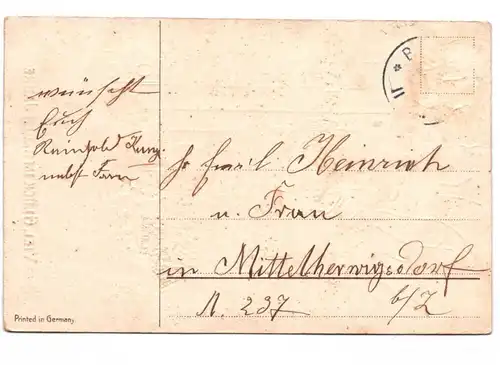 wünscht
Euch
Reinhold Kunze
nebst Frau
Hr Emil Heinrich
u. Frau
in Mittelherwigsdorf
N. 237 b/Z
Printed in Germany